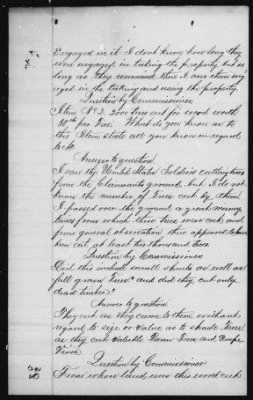 Engaged in it I dont know how long they
were engaged in taking the property but as
long as they remained there I saw them eng
aged in the taking and using the property
Question by Commissioner
Item No 2. 2000 trees cut for wood worth
What do you know as to
this Item state all you know in regard
to it.
Answer to question
I saw the United States Soldiers cutting trees
from the Claimants ground, but I do not
know the number of trees cut by them
I passed over the ground a great many
times from which these trees were cut, and
from general observation there appeared to have
been cut at least two thousand trees
Question by Commissioner
Did this include small shrubs as well as
full grown trees and did they cut only
dead timber?
Answer to question
They cut as they came to them without
regard to size or value as to shade trees
as they cut valuable Pecan trees and Grape
Vines
Question by Commissioner
From whose land were this wood cut